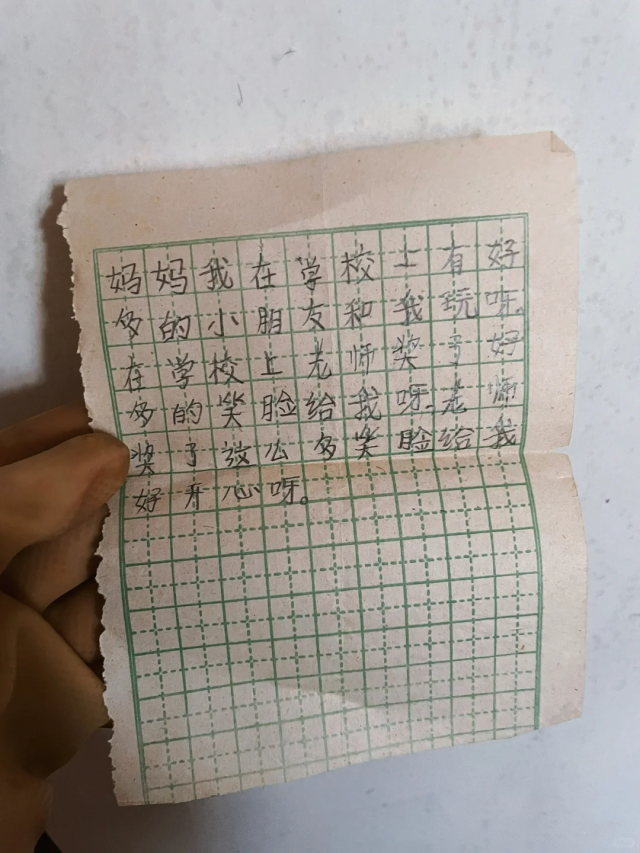 妈妈我在学校上有好
多的小朋友和我玩呀。
在学校上老师奖了好
多的笑脸给我呀。老师
奖了这么多笑脸给我
好开心呀。